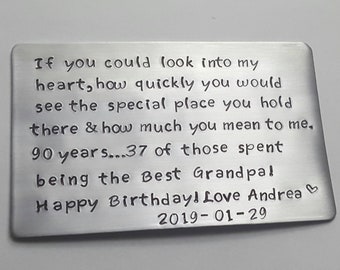 If you could look into my
heart,how quickly you would
see the special place you hold
there & how much you mean to me.
90 years...37 of those spent
being the Best Grandpa!
Happy Birthday! Love Andrea ♡
2019-01-29